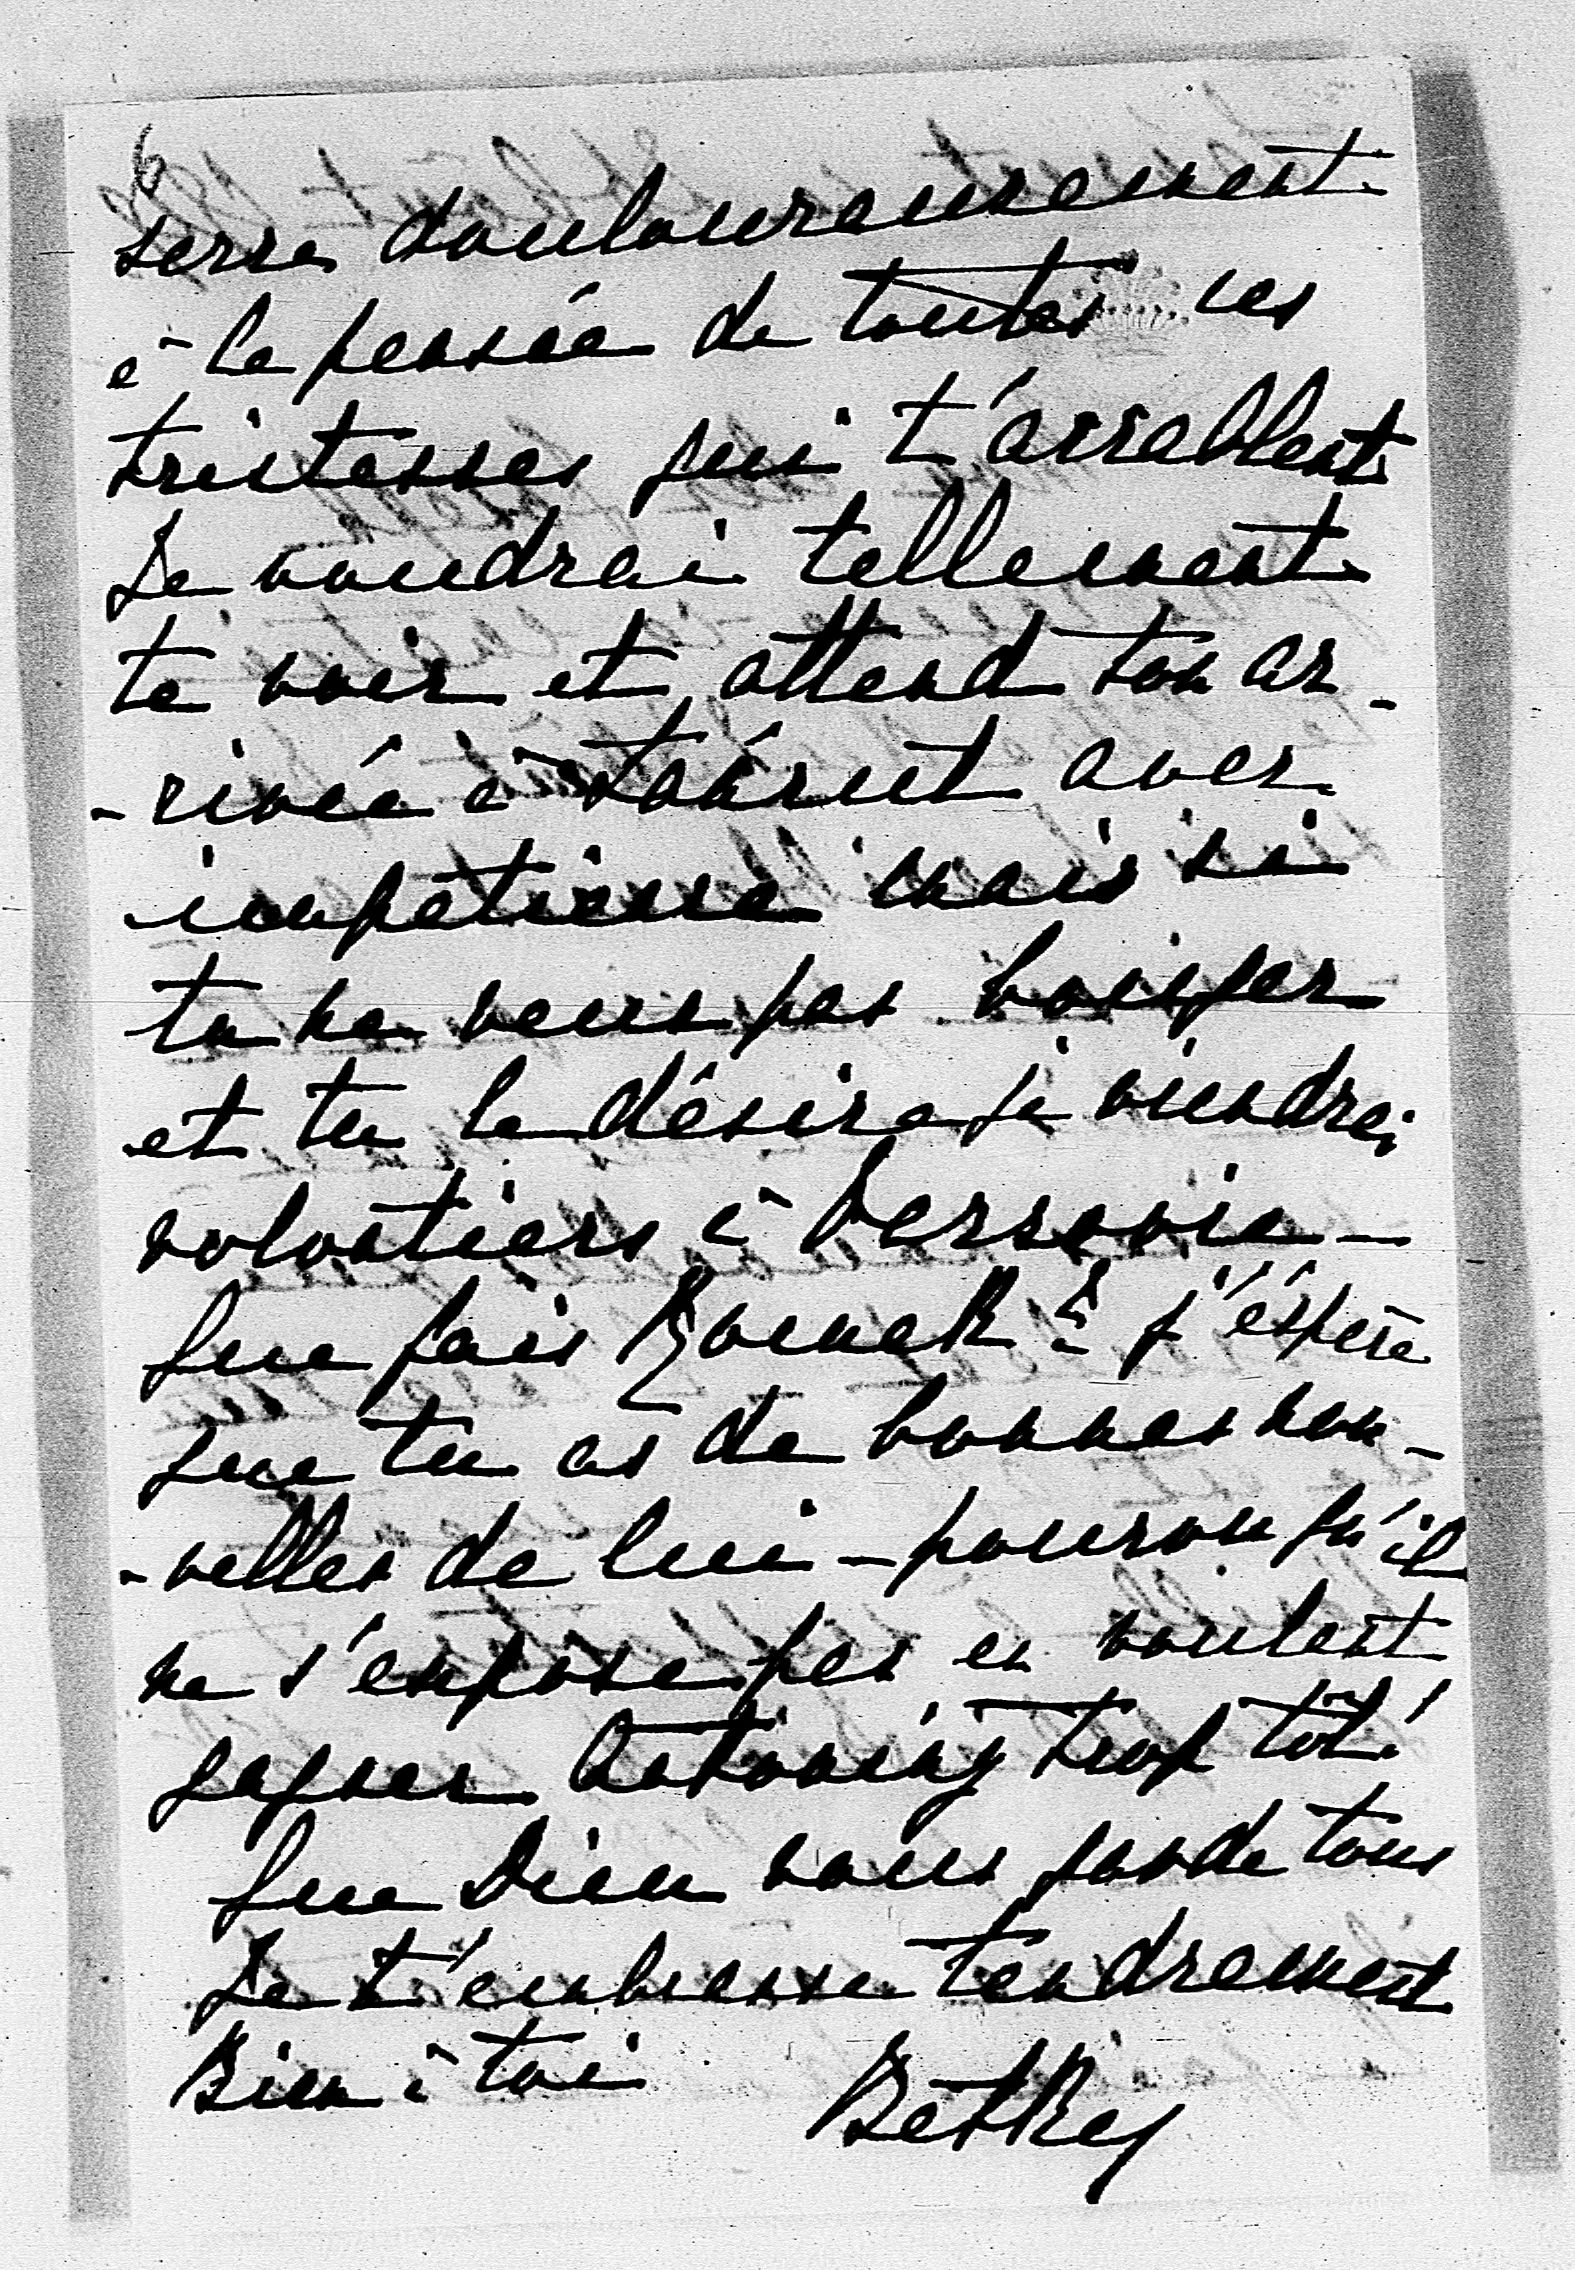 6
serre douloureusement
à la pensée de toutes ces
tristesses qui t'accablent
Je voudrai tellement
te voir et attend ton ar-
-rivée à avec
impatience mais si
tu ne veux pas bouger
et tu le désire je viendrai
volontiers à Varsovie -
Que fais ? j'éspère
que tu as de bonnes nou-
-velles de lui - pourvu qu'il
ne s'expose pas en voulant
gagner Antoniny trop tôt!
Que Dieu vous garde tous
Je t'embrasse tendrement
Bien à toi
Betkey